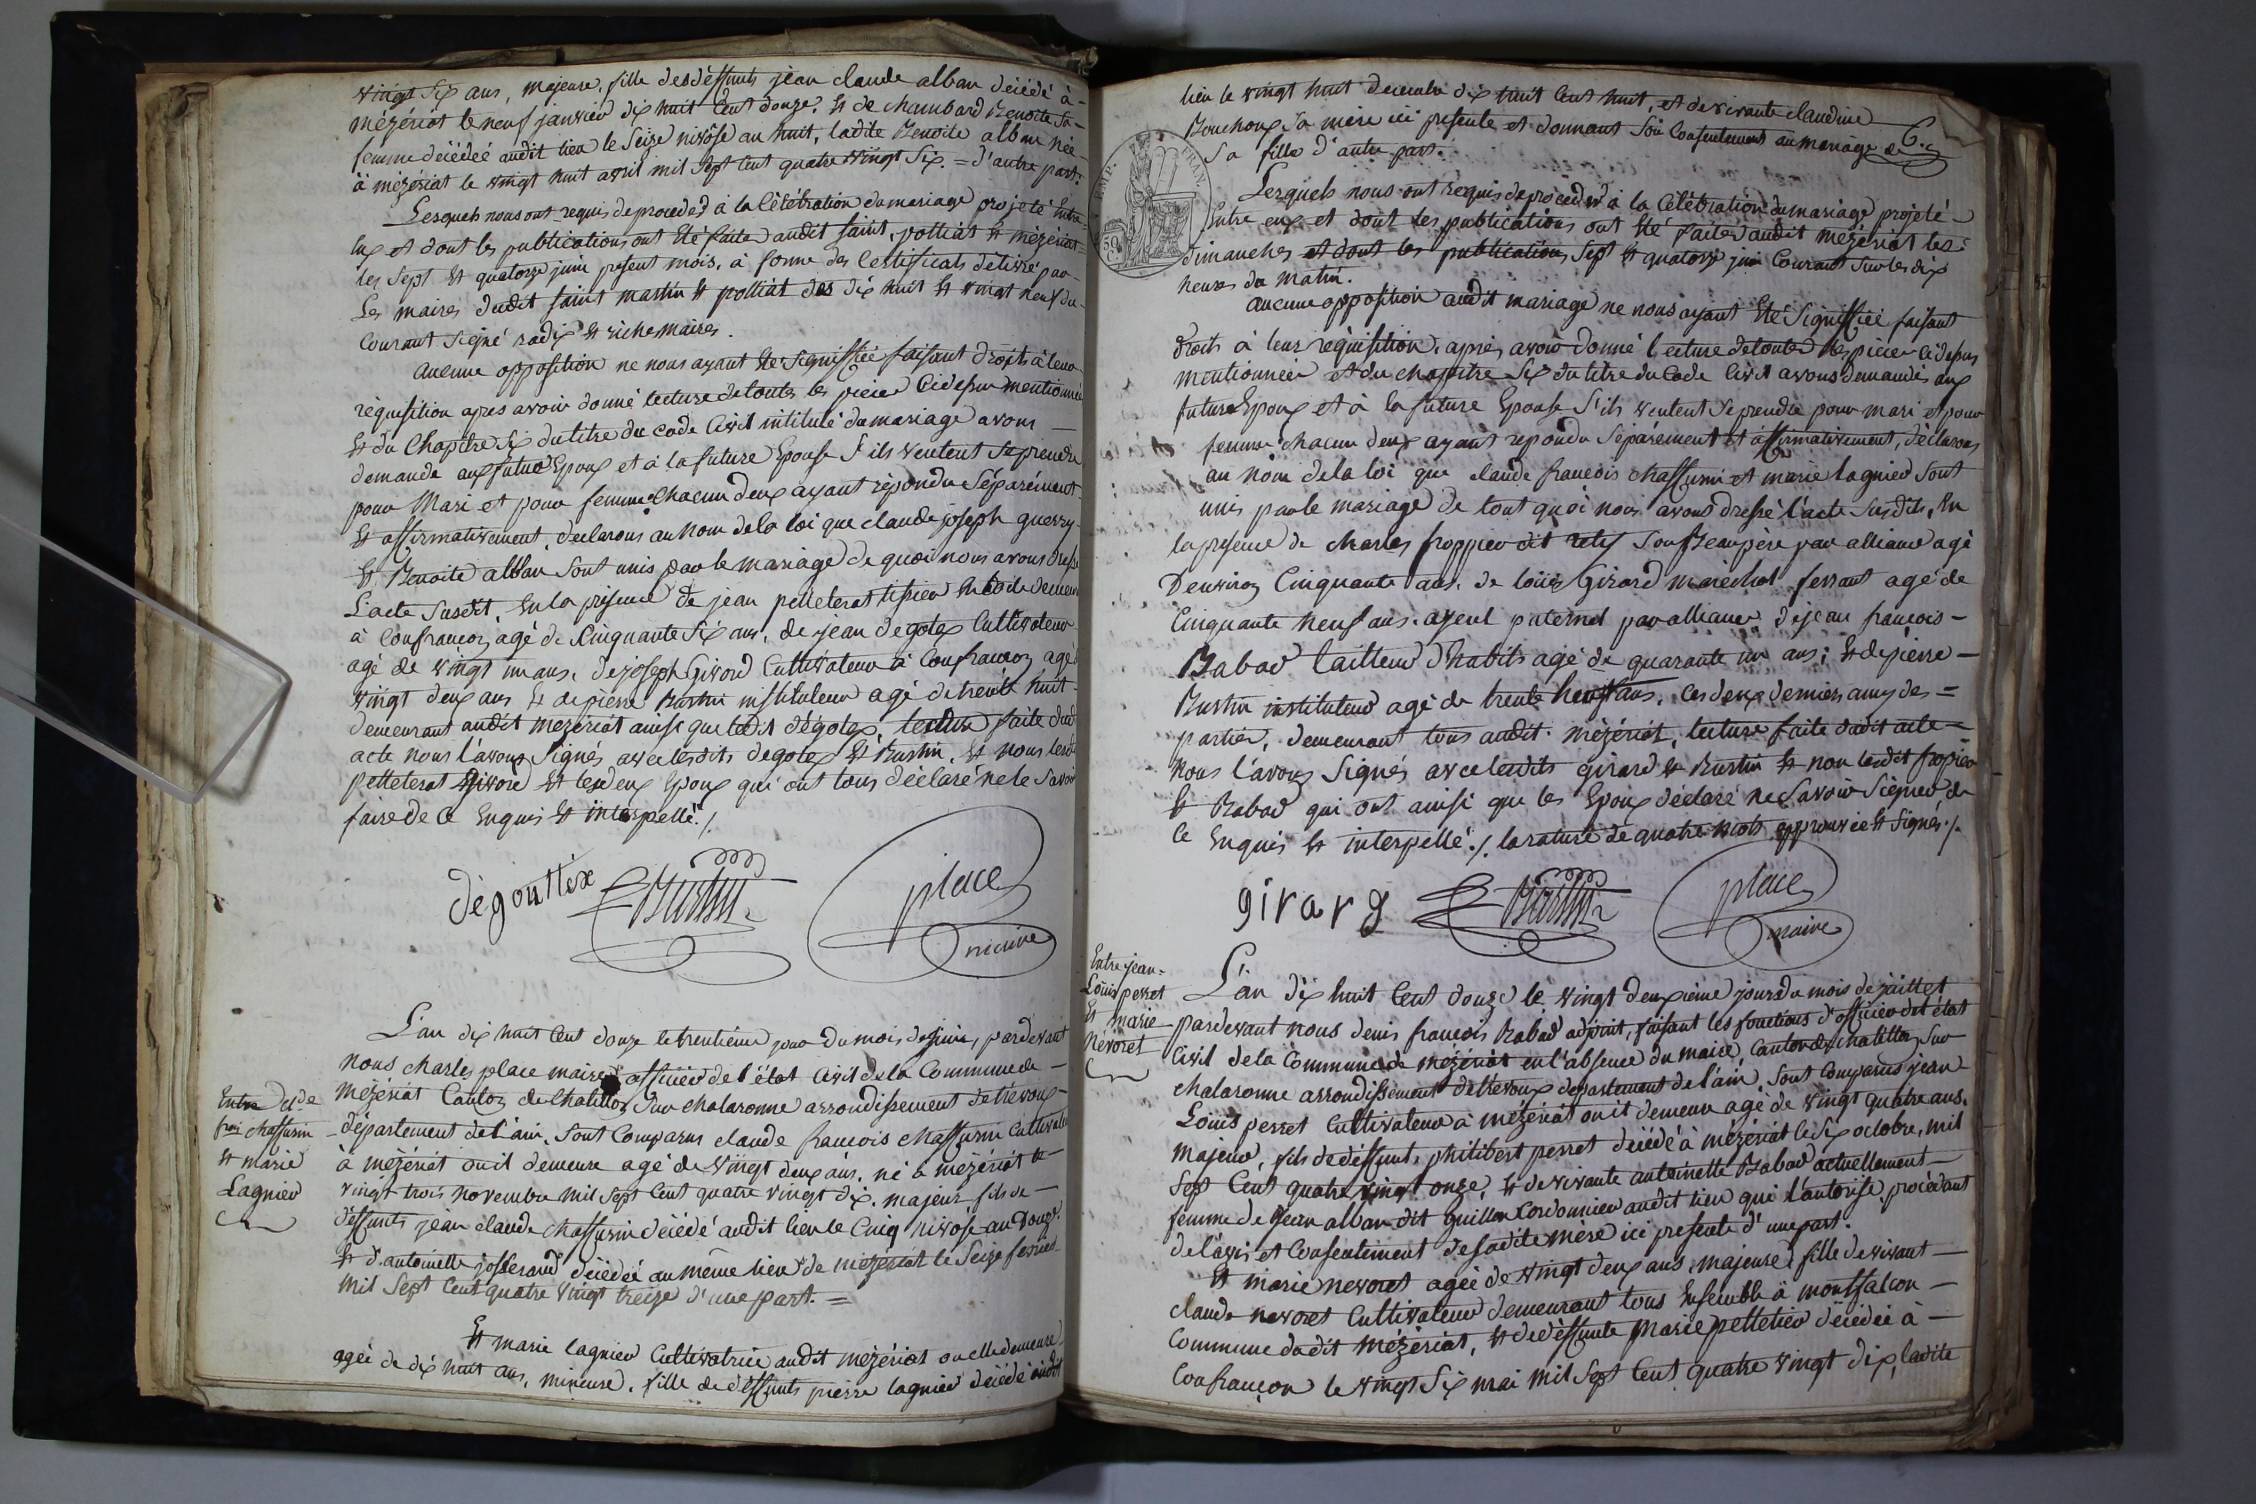 vingt six ans, majeure, fille des déffunts jean claude alban décédé à
mézériat le neuf janvier dix huit cent douze, et de chambard Benoite sa
femme décédée audit lieu le seize nivôse an huit, ladite Benoite alban née
à mézériat le vingt huit avril mil sept cent quatre vingt six. = d'autre part.
Lesquels nous ont requis de proceder à la Célébration du mariage projeté entre
eux et dont les publications ont été faites audit saint, polliat et mézériat
les sept et quatorze juin présent mois, à forme des Certificats délivré par
les maires dudit saint martin et polliat des dix huit et vingt neuf du
Courant signé radix et riche maires.
aucune opposition ne nous ayant été signiffiée faisant droits à leur
réquisition apres avoir donné lecture de toutes les pieces Cidessus mentionnée
et du Chapitre six du titre du code Civil intitulé du mariage avons
demandé aux futur Epoux et à la future Epouse s'ils veulent se prendre
pour Mari et pour femme chacun deux ayant répondu séparément
et affirmativement, déclarons au nom de la loi que claude joseph guerry
et Benoite alban sont unis par le mariage de quoi nous avons dressé
L'acte susdit, en la présence de jean pelleterat tissier
à Confrançon agé de Cinquante six ans, de jean degotex Cultivateur
agé de vingt un ans, de joseph Givord Cultivateur à Confrançon agé
vingt deux ans et de pierre Burtin instituteur agé de trente huit
demeurant audit mézériat ainsi que ledit dégotex, lecture faite dudit
acte nous l'avons signés avec lesdits degotex et Burtin, et nous lesdits
pelleterat Givord et les deux Epoux qui ont tous déclaré ne le savoir
faire de ce enquis et interpellé ./.
dégouttex Burtin place
maire
L'an dix huit Cent douze le trentième jour du mois de juin, pardevant
nous charles place maire officier de l'état Civil de la Commune de
Entre Cl.de mézériat Canton de Chatillon sur chalaronne arrondissement de trévoux
frois chassurin département de l'ain. Sont Comparus claude francois chassurin Cultivateur
et marie à mézériat ou il demeure agé de vingt deux ans, né à mézériat le
Lagnier vingt trois novembre mil sept Cent quatre vingt dix, majeur fils de
déffunts jean claude chassurin décédé audit lieu le Cinq nivose an douze
et d'antoinette josserand décédée au même lieu de mézériat le seize fevrier
mil sept Cent quatre vingt treize d'une part. =
Et marie lagnier Cultivatrice audit mézériat ou elle demeure
agée de dix huit ans, mineure, fille de déffunts pierre lagnier décédé audit
lieu le vingt huit decembre dix huit cent huit, et de vivante claudine
Bouchoux sa mère ici présente et donnant son Consentement au mariage de
6.
sa fille d'autre part.
Lesquels nous ont requis de proceder à la Célébration du mariage projeté
Entre eux et dont les publications ont été faites audit mézériat les
dimanches et dont les publications sept et quatorze juin Courant sur les dix
heures du matin.
EMP. FRAN.
50 C
aucune opposition audit mariage ne nous ayant été signiffiée faisant
droits à leur réquisition, apres avoir donné lecture de toutes les pieces cidessus
mentionnées et du chapitre six du titre du Code Civil avons demandés aux
futur Epoux et à la future Epouse s'ils veulent se prendre pour mari et pour
femme chacun deux ayant repondu séparément et affirmativement, déclarons
au nom de la loi que claude francois chassurin et marie lagnier sont
unis par le mariage de tout quoi nous avons dressé l'acte susdits, En
la presence de charles froppier dit son Beaupère par alliance agé
D'environ Cinquante ans, de loüis Girard maréchal ferrant agé de
Cinquante neuf ans, ayeul paternel par alliance, de jean francois
Rabad tailleur d'habits agé de quarante un ans; et de pierre
Burtin instituteur agé de trente huit ans, ces deux derniers amys des =
parties, demeurant tous audit mézériat, lecture faite dudit acte
nous l'avons signés avec lesdits girard et Burtin et non lesdit fropier
et Rabad qui ont ainsi que les Epoux déclaré ne savoir signer de
ce Enquis et interpellé ./. la rature de quatre mots approuvée et signés ./.
girard Burtin place
maire
Entre jean
Loüis perret
et marie
Névoret
L'an dix huit Cent douze le vingt deuxième jours du mois de juillet
pardevant nous denis francois Rabad adjoint, faisant les fonctions d'officier de l'état
Civil de la Commune de mézériat en l'absence du maire, canton de chatillon sur
chalaronne arrondissement de trévoux département de l'ain, sont comparus jean
Loüis perret Cultivateur à mézériat ou il demeure agé de vingt quatre ans,
majeur, fils de déffunt philibert perret décédé à mézériat le six octobre, mil
sept Cent quatre vingt onze, et de vivante antoinette Rabad actuellement
femme de jean alban dit guillon Cordonnier audit lieu qui l'autorise, procédant
de l'avis et Consentement de sadite mère ici presente d'une part.
Et marie nevoret agée de vingt deux ans, majeure, fille de vivant
claude nevoret Cultivateur demeurant tous Ensemble à montfalcon
Commune dudit mézériat, et de déffunte Marie pelletier décédée à
Confrançon le vingt six mai mil sept Cent quatre vingt dix, ladite